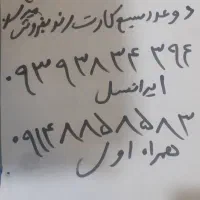 دو عدد سیم کارت رند بفروش میرسد
۰۹۳۹۳۸۳۴۳۹۶
ایرانسل
۰۹۱۴۸۸۵۸۵۸۳
همراه اول